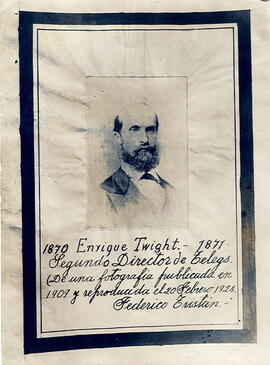 1870 Enrique Twight.- 1871.
Segundo Director de Telegs.
(De una fotografía publicada en
1909 y reproducida el 20 Febrero 1924.
Federico Tristán.-